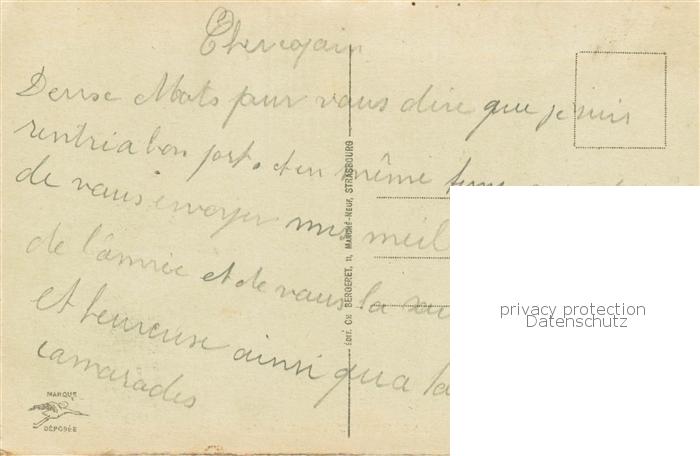 Cher copain
Deuse Mots pour vous dire que je suis
rentri a bon port. et en même temp
de vous envoyer mes meil
de l'année et de vous la sou
et heureuse ainsi qua ta
camarades
ÉDIT. CH. BERGERET, 11, MARCHÉ-NEUF, STRASBOURG
MARQUE
DÉPOSÉE
privacy protection
Datenschutz